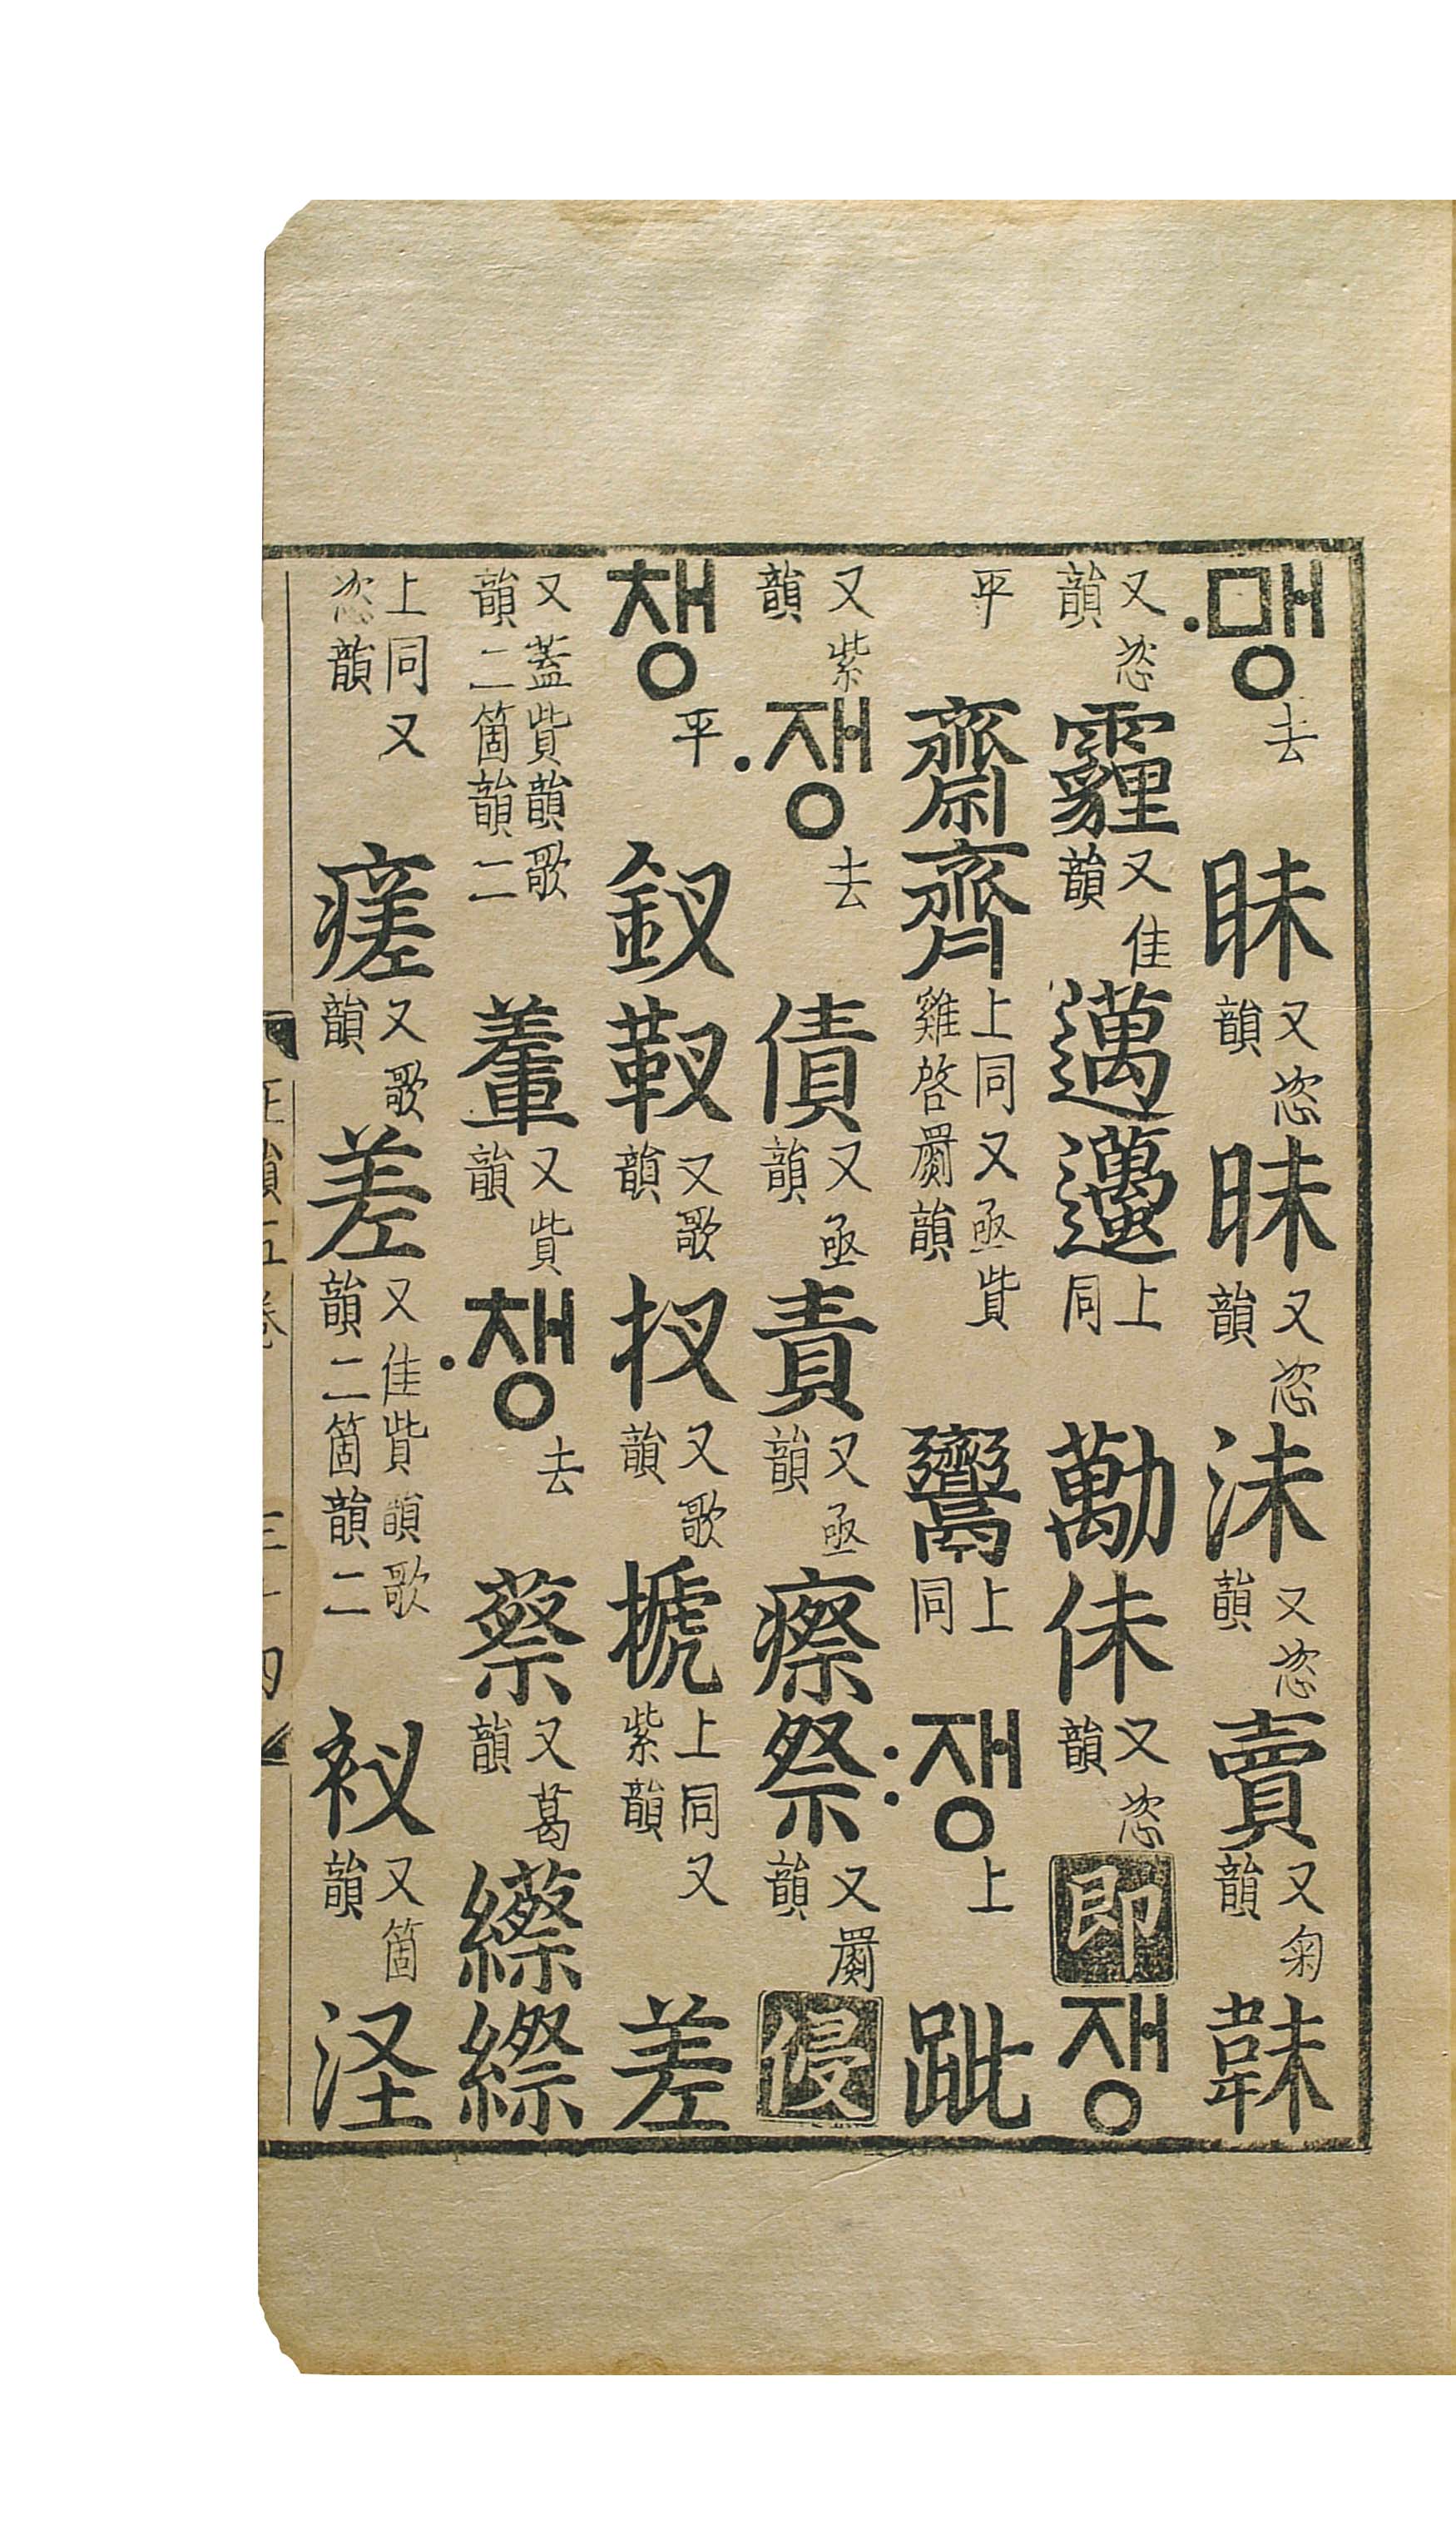 ·맹 去 眛 又恣韻 昧 又恣韻 沬 又恣韻 賣 又菊韻 韎
又恣韻 霾 又佳韻 邁 𨘺 上同 勱 佅 又恣韻 卽 쟁
平 齋 齊 上同又亟貲雞啓罽韻 上同 :쟁 上 跐
又紫韻 ·쟁 去 債 又亟韻 責 又亟韻 瘵 祭 又罽韻 侵
챙 平 釵 靫 又歌韻 扠 又歌韻 搋 上同又紫韻 差
又蓋貲韻歌韻二箇韻二 輂 又貲韻 ·챙 去 蔡 又葛韻 縩
上同又恣韻 瘥 又歌韻 差 又佳貲韻歌韻二箇韻二 衩 又箇韻